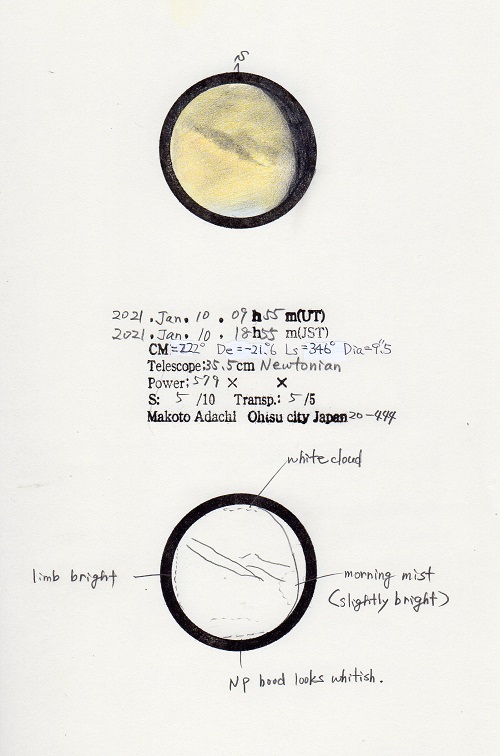 S
2021. Jan. 10. 09h55m(UT)
2021. Jan. 10. 18h55m(JST)
CM=222° De=-21.°6 Ls=346° Dia=9."5
Telescope:35.5cm Newtonian
Power: 579 × ×
S: 5 /10 Transp.: 5 /5
Makoto Adachi Ohtsu city Japan 20-444
white cloud
limb bright
morning mist
(slightly bright)
NP hood looks whitish.